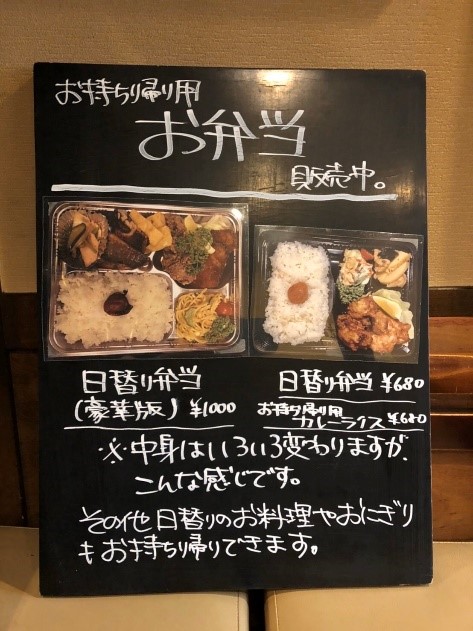 お持ち帰り用
お弁当
販売中。
日替り弁当
(豪華版) ¥1000
日替り弁当 ¥680
お持ち帰り用
カレーライス ¥680
※中身はいろいろ変わりますが、
こんな感じです。
その他日替りのお料理やおにぎり
もお持ち帰りできます。